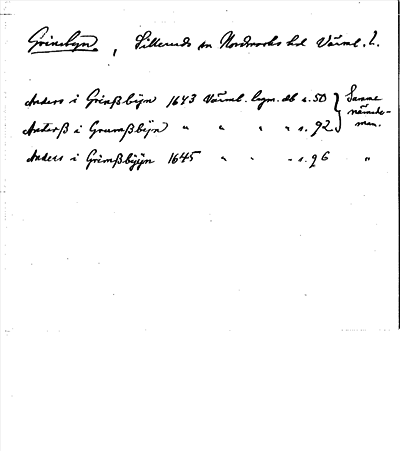 Grinsbyn, Silleruds sn Nordmarks hd Värml. l.
Anders i Grinßbÿn 1643 Värml. lagm. db s. 50 } Samme
Anderß i Grimßbÿn " " " " s. 92 } nämnde-
man.
Anders i Grimßbÿn 1645 " " " s. 96 "